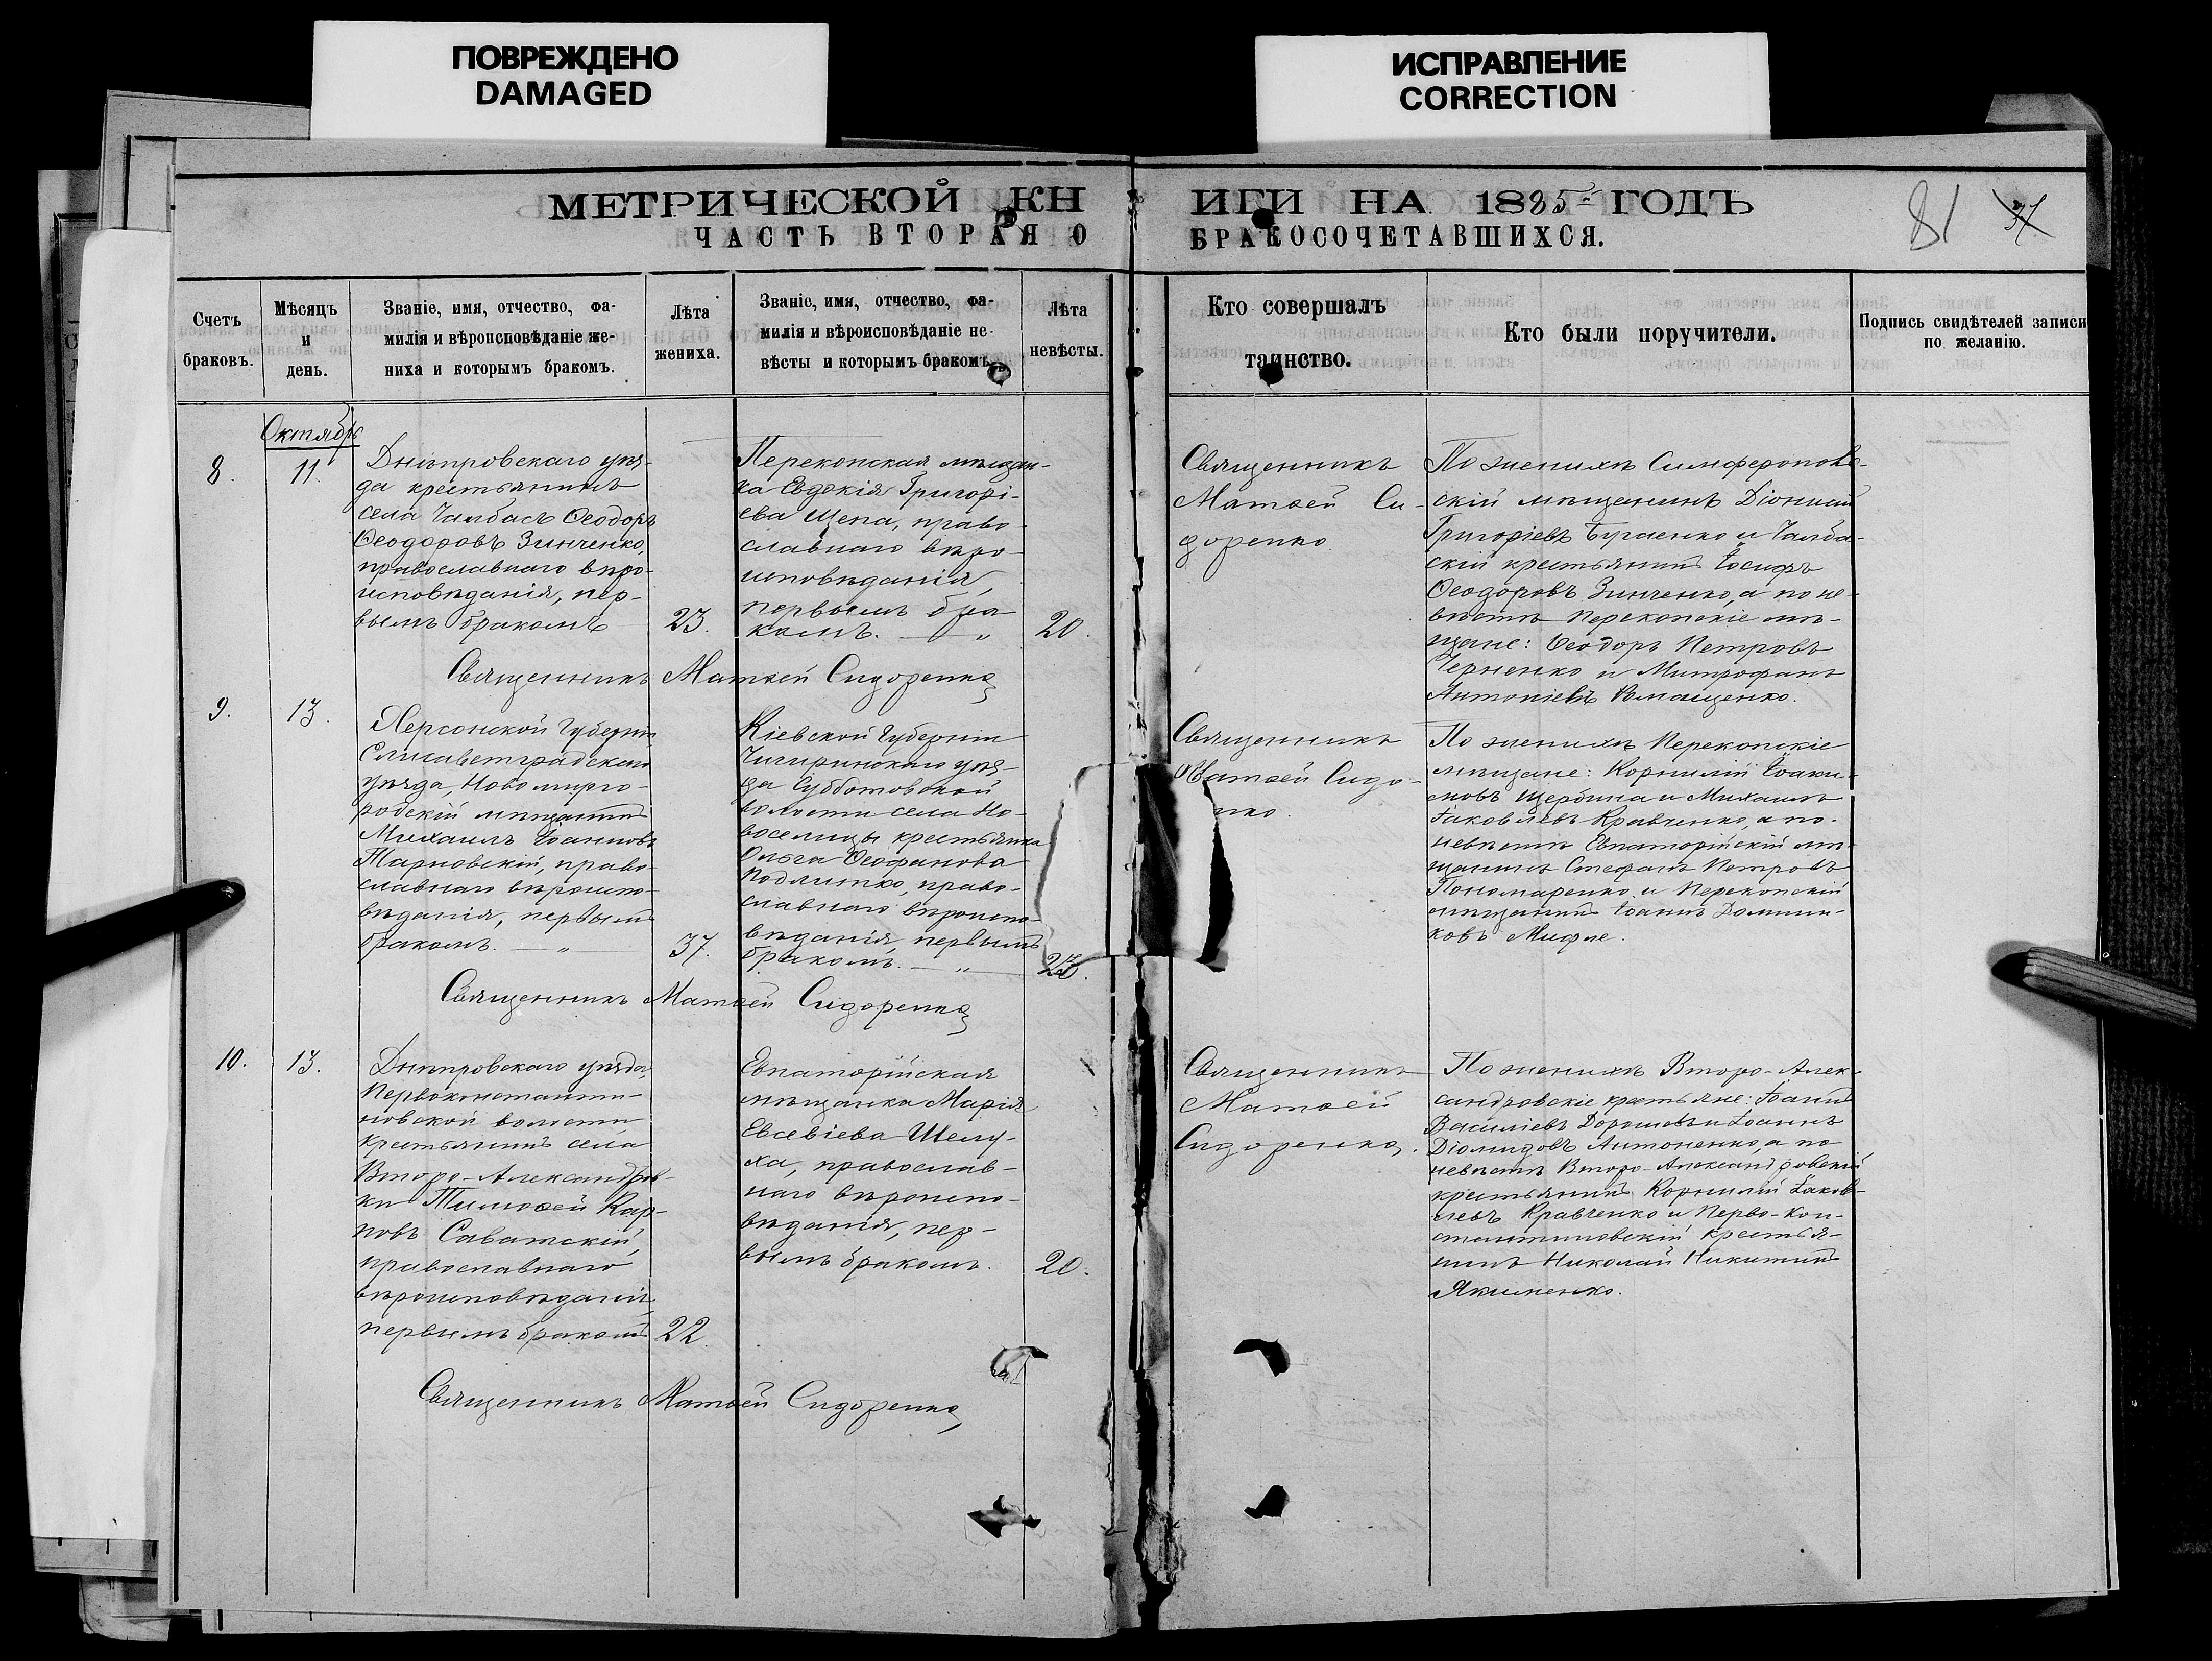 ПОВРЕЖДЕНО
DAMAGED
ИСПРАВЛЕНИЕ
CORRECTION
МЕТРИЧЕСКОЙ КНИГИ НА 1885 ГОДЪ
ЧАСТЬ ВТОРАЯ О БРАКОСОЧЕТАВШИХСЯ.
81
37
Счетъ
браковъ.
Мѣсяцъ
и
день.
Званіе, имя, отчество, фа-
милія и вѣроисповѣданіе же-
ниха и которымъ бракомъ.
Лѣта
жениха.
Званіе, имя, отчество, фа-
милія и вѣроисповѣданіе не-
вѣсты и которымъ бракомъ.
Лѣта
невѣсты.
Кто совершалъ
таинство.
Кто были поручители.
Подпись свидѣтелей записи
по желанію.
Октябрь
8.
11.
Днѣпровскаго уѣз-
да крестьянинъ
села Чалбасъ Ѳеодоръ
Ѳеодоровъ Зинченко,
православнаго вѣро-
исповѣданія, пер-
вымъ бракомъ
23.
Перекопская мѣщан-
ка Евдокія Григорі-
ева Щепа, право-
славнаго вѣро-
исповѣданія,
первымъ бра-
комъ. — „
20.
Священникъ
Матѳей Си-
доренко
По женихѣ Симферополь-
скій мѣщанинъ Діонисій
Григоріевъ и Чалба-
скій крестьянинъ Іосифъ
Ѳеодоровъ Зинченко, а по не-
вѣстѣ Перекопскіе мѣ-
щане: Ѳеодоръ Петровъ
Черненко и Митрофанъ
Антоніевъ
Священникъ Матѳей Сидоренко
9.
13.
Херсонской Губерніи,
Елисаветградскаго
уѣзда, Новомирго-
родскій мѣщанинъ
Михаилъ Іоанновъ
Тарновскій, право-
славнаго вѣроиспо-
вѣданія, первымъ
бракомъ. — „ —
37.
Кіевской Губерніи
Чигиринскаго уѣз-
да Субботовской
волости села Но-
воселицы крестьянка
Ольга Ѳеофанова
православнаго вѣроиспо-
вѣданія, первымъ
бракомъ. — „ —
Священникъ
Матѳей Сидо-
нко.
По женихѣ Перекопскіе
мѣщане: Корнилій Іоаки-
мовъ Щербина и Михаилъ
Іаковлевъ Кравченко, а по
невѣстѣ Евпаторійскій мѣ-
щанинъ Стефанъ Петровъ
Пономаренко и Перекопскій
мѣщанинъ Іоаннъ
Священникъ Матѳей Сидоренко
10.
13.
Днѣпровскаго уѣзда,
Первоконстанти-
новской волости
крестьянинъ села
Второ-Александров-
ки Тимоѳей Кар-
повъ Саватскій,
православнаго
вѣроисповѣданія,
первымъ бракомъ
22.
Евпаторійская
мѣщанка Марія
Евсевіева Шелу-
ха, православ-
наго вѣроиспо-
вѣданія, пер-
вымъ бракомъ.
20.
Священникъ
Матѳей
Сидоренко.
По женихѣ Второ-Алек-
сандровскіе крестьяне: Іоаннъ
Василіевъ и Іоаннъ
Діомидовъ Антоненко, а по
невѣстѣ Второ-Александровскій
крестьянинъ Корнилій Іаков-
левъ Кравченко и Перво-Кон-
стантиновскій крестья-
нинъ Николай Никитинъ
Якименко.
Священникъ Матѳей Сидоренко